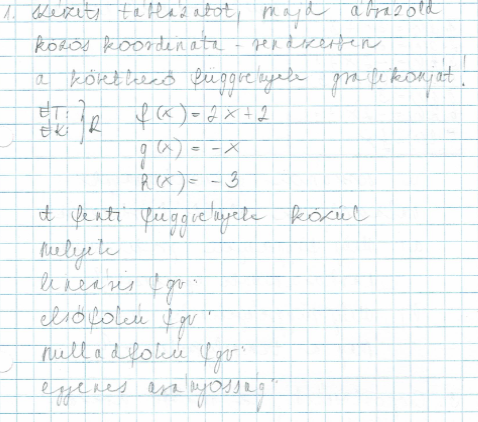 1. Készíts táblázatot, majd ábrázold
közös koordináta-rendszerben
a következő függvények grafikonját!
ÉT: } R f(x) = 2x + 2
ÉK:
g(x) = -x
h(x) = -3
A fenti függvények közül
melyek
lineáris fgv.
elsőfokú fgv.
nulladfokú fgv.
egyenes arányosság